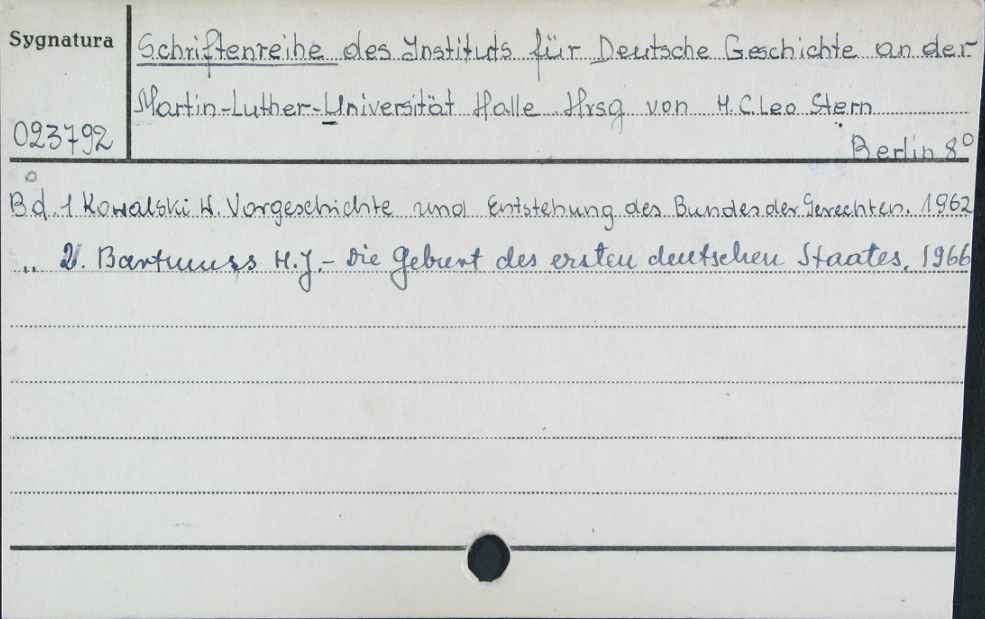 Sygnatura
Schriftenreihe des Instituts für Deutsche Geschichte an der
Martin-Luther-Universität Halle. Hrsg von H.C. Leo Stern
023792
Berlin 8°
Bd. 1 Kowalski W. Vorgeschichte und Entstehung des Bundes der Gerechten. 1962
„ 2. Bartmuss H.J.- Die Geburt des ersten deutschen Staates, 1966